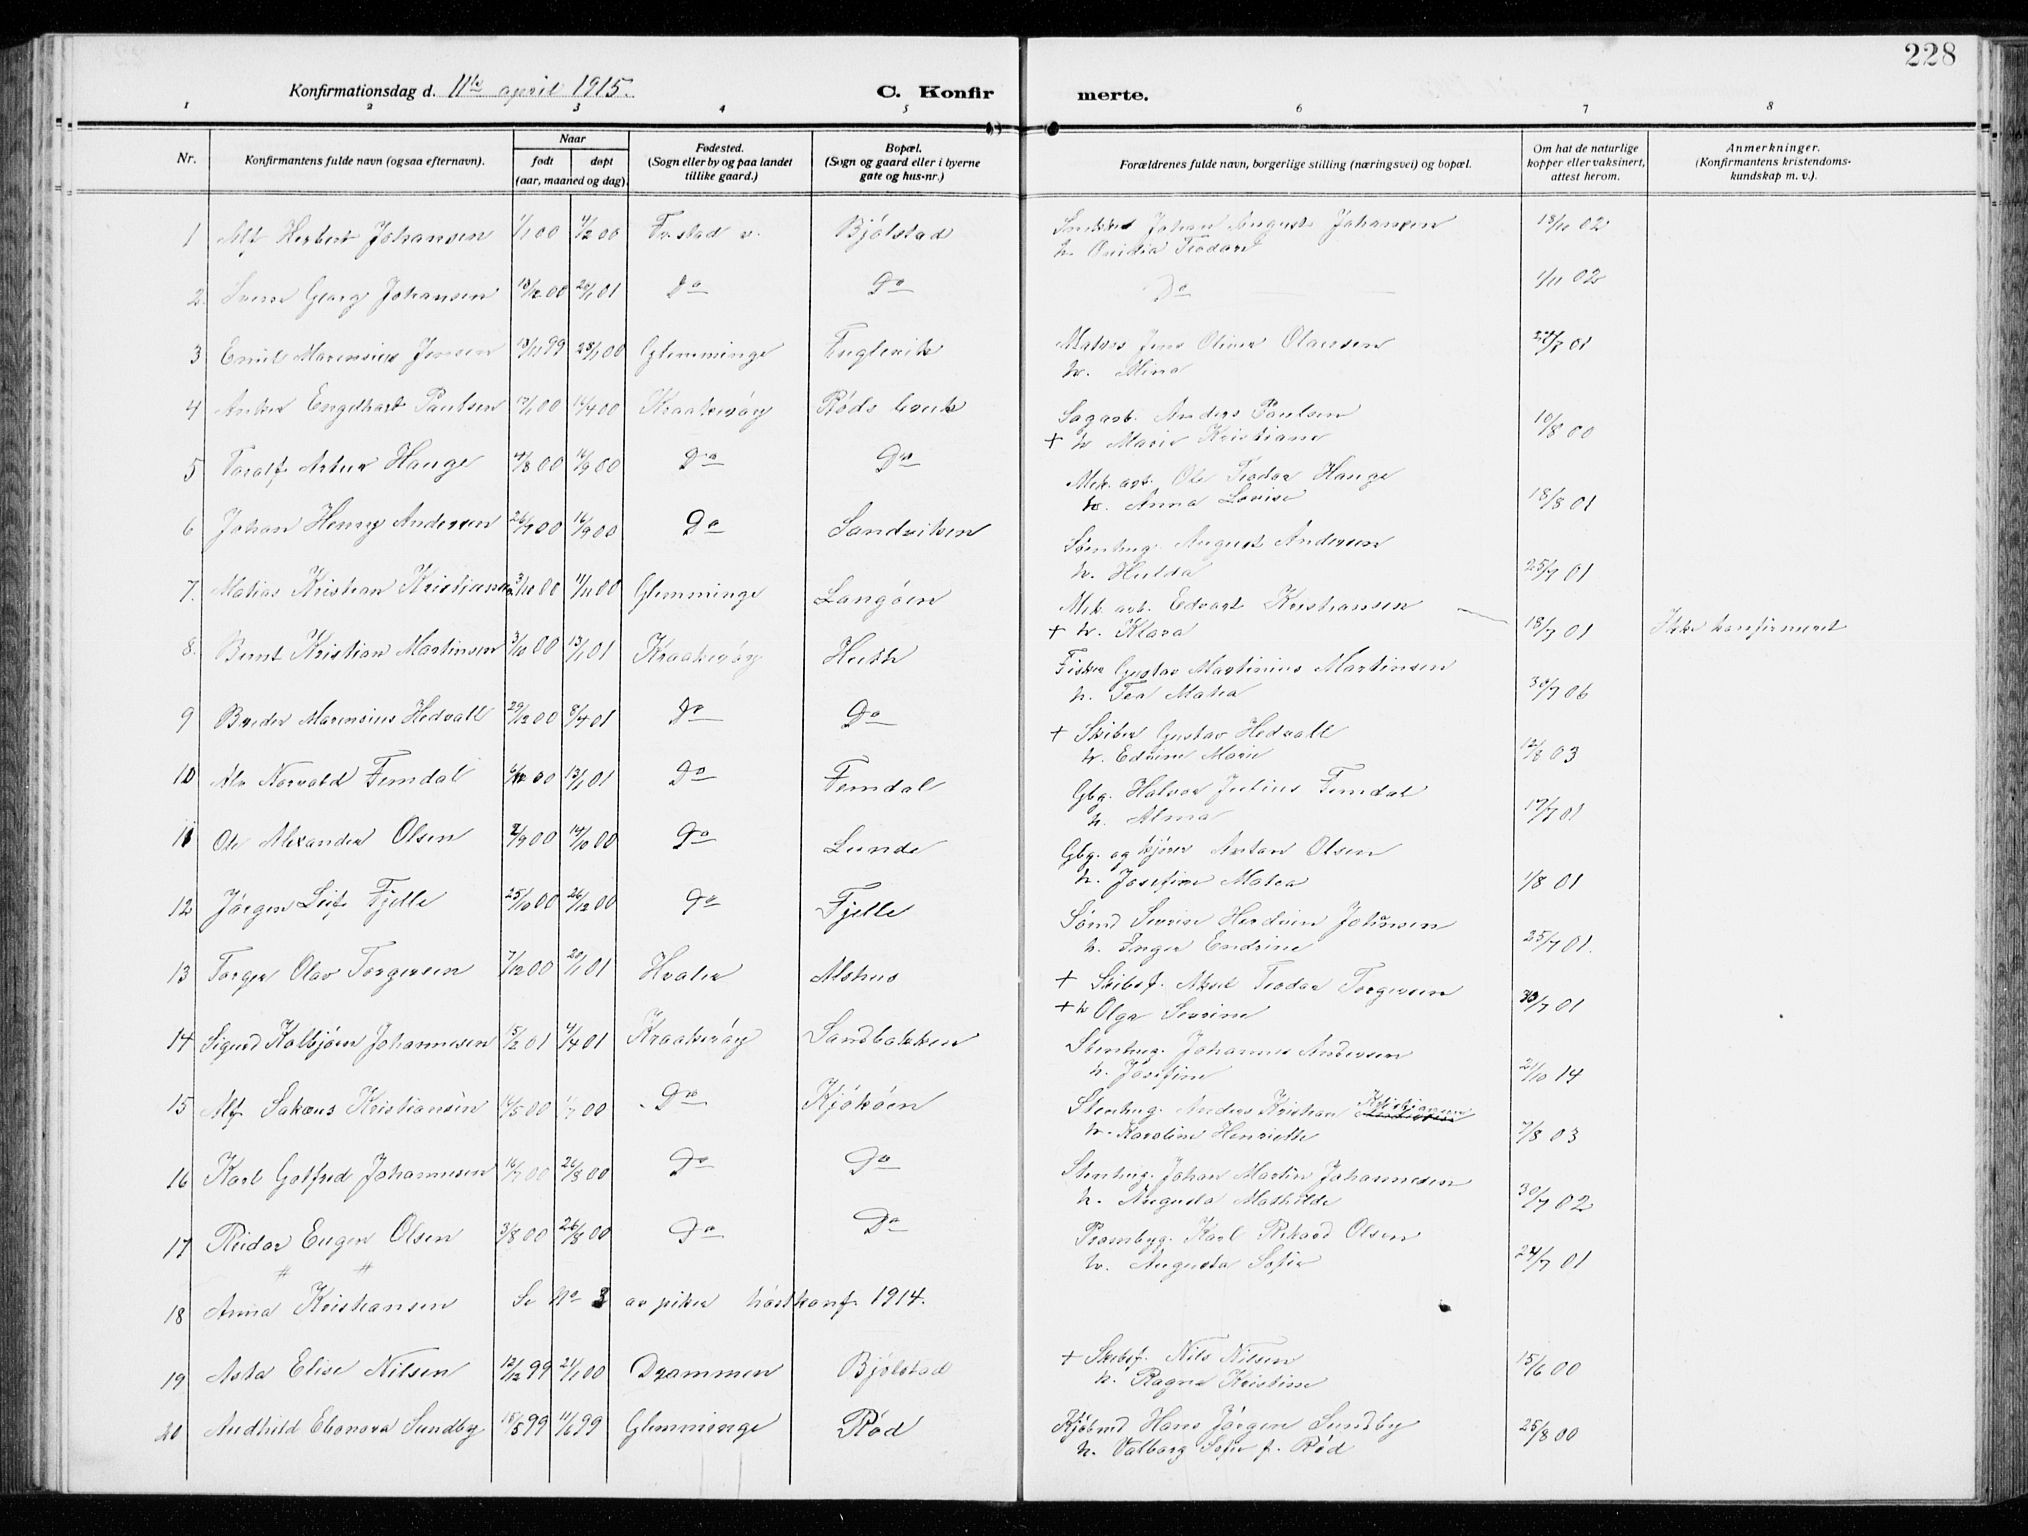 228
Konfirmationsdag d. 11te april 1915.
C. Konfirmerte.
1 2 3 4 5 6 7 8
Nr.
Konfirmantens fulde navn (ogsaa efternavn).
Naar
født
døpt
(aar, maaned og dag).
Fødested.
(Sogn eller by og paa landet
tillike gaard.)
Bopæl.
(Sogn og gaard eller i byerne
gate og hus-nr.)
Forældrenes fulde navn, borgerlige stilling (næringsvei) og bopæl.
Om hat de naturlige
kopper eller vaksinert,
attest herom.
Anmerkninger.
(Konfirmantens kristendoms-
kundskap m. v.).
1 Alf Herbert Johansen 1/1 00 4/2 00 Fr.stad Bjølstad Johan August Johansen 13/10 02
h. Teodara
2. Georg Johansen 13/12 00 20/1 01 Do Do Do 1/11 02
3 Emil Marensius Jensen 13/11 99 28/1 00 Glemminge Englevik Matros Jens Oliver Olausen 24/7 01
h. Mina
4 Anker Engelhart Paulsen 17/1 00 16/4 00 Kraakerøy Røds bruk Sagarb. Anders Paulsen 10/8 00
+ h Marie Kristiane
5 Toralf Artur Hauge 4/8 00 16/9 00 Do Do Mek. arb. Ole Teodor Hauge 18/8 01
h. Anna Lovise
6 Johan Henry Andersen 26/7 00 16/9 00 Do Sandviken Stenhug. August Andersen 25/7 01
h. Hulda
7. Matias Kristian Kristiansen 3/10 00 11/11 00 Glemminge Langøen Mek. arb. Edvart Kristiansen 18/7 01 Ikke konfirmeret
+ h. Klara
8. Bernt Kristian Martinsen 3/10 00 13/1 01 Kraakerøy Huth Fisker Gustav Martinius Martinsen 30/7 06
h. Tea Matea
9 Breder Marensius Hedvall 29/12 00 8/4 01 Do Do + Skiber Gustav Hedvall 12/8 03
h. Edvine Marie
10 Alv Norvald Femdal 6/12 00 13/1 01 Do Femdal Gbg. Halvor Julius Femdal 17/7 01
h. Alma
11 Ole Alexander Olsen 2/9 00 14/10 00 Do Lunde Gbg. og kjører Anton Olsen 1/8 01
h. Josefine Matea
12 Jørgen Leif Fjelle 25/10 00 26/12 00 Do Fjelle Johansen 25/7 01.
h. Inger Endrine
13 Torger Olav Torgersen 7/12 00 20/1 01 Hvaler Alshus + Skibsf. Aksel Teodor Torgersen 30/7 01
+ h Olga Sevrine
14 Sigurd Kolbjørn Johannesen 5/2 01 4/4 01 Kraakerøy Sandbakken Stenhug. Johannes Andersen 21/10 14
h. Josefine
15 Alf Sakæus Kristiansen 14/5 00 1/7 00 Do Kjøkøen Stenhug. Anders Kristian Kristiansen 7/8 03
h. Karoline Henriette
16 Karl Gotfred Johannesen 16/7 00 26/8 00 Do Do Stenhug. Johan Martin Johannesen 30/7 02
h. Augusta Mathilde
17 Reidar Eugen Olsen 3/8 00 26/8 00 Do Do Prambyg. Karl Rikard Olsen 24/7 01
h. Augusta Sofie
18 Anna Kristiansen Se No 3 av piker høstkonf. 1914.
19 Asta Elise Nilsen 12/12 99 21/1 00 Drammen Bjølstad + Skibsf. Nils Nilsen 15/6 00
h. Ragna Kristine
20 Audhild Eleonora Sundby 15/5 99 11/6 99 Glemminge Rød Kjøbmd Hans Jørgen Sundby 25/8 00
h. Valborg Sofie f. Rød